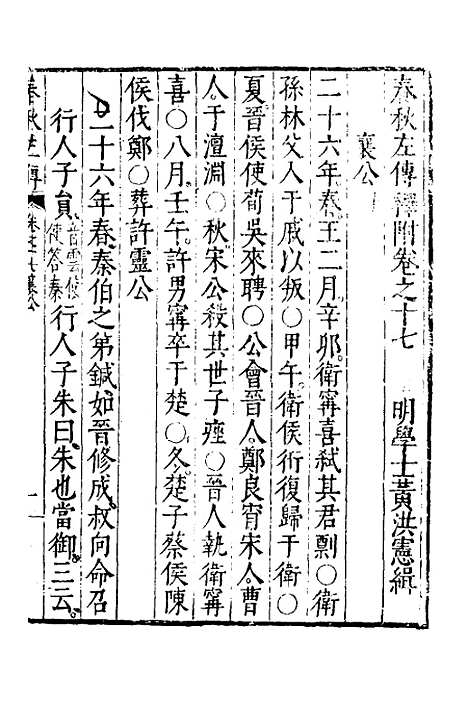 春秋左傳釋附卷之十七　明學士黃洪憲緝
襄公
二十六年春王二月辛卯衛甯喜弒其君剽○衛
孫林父入于戚以叛○甲午衛侯衎復歸于衛○
夏晉侯使荀吳來聘○公會晉人鄭良霄宋人曹
人于澶淵○秋宋公殺其世子痤○晉人執衛甯
喜○八月壬午許男甯卒于楚○冬楚子蔡侯陳
侯伐鄭○葬許靈公
二十六年春秦伯之弟鍼如晉修成叔向命召
行人子員音雲使答秦行人子朱曰朱也當御三云
春秋左傳